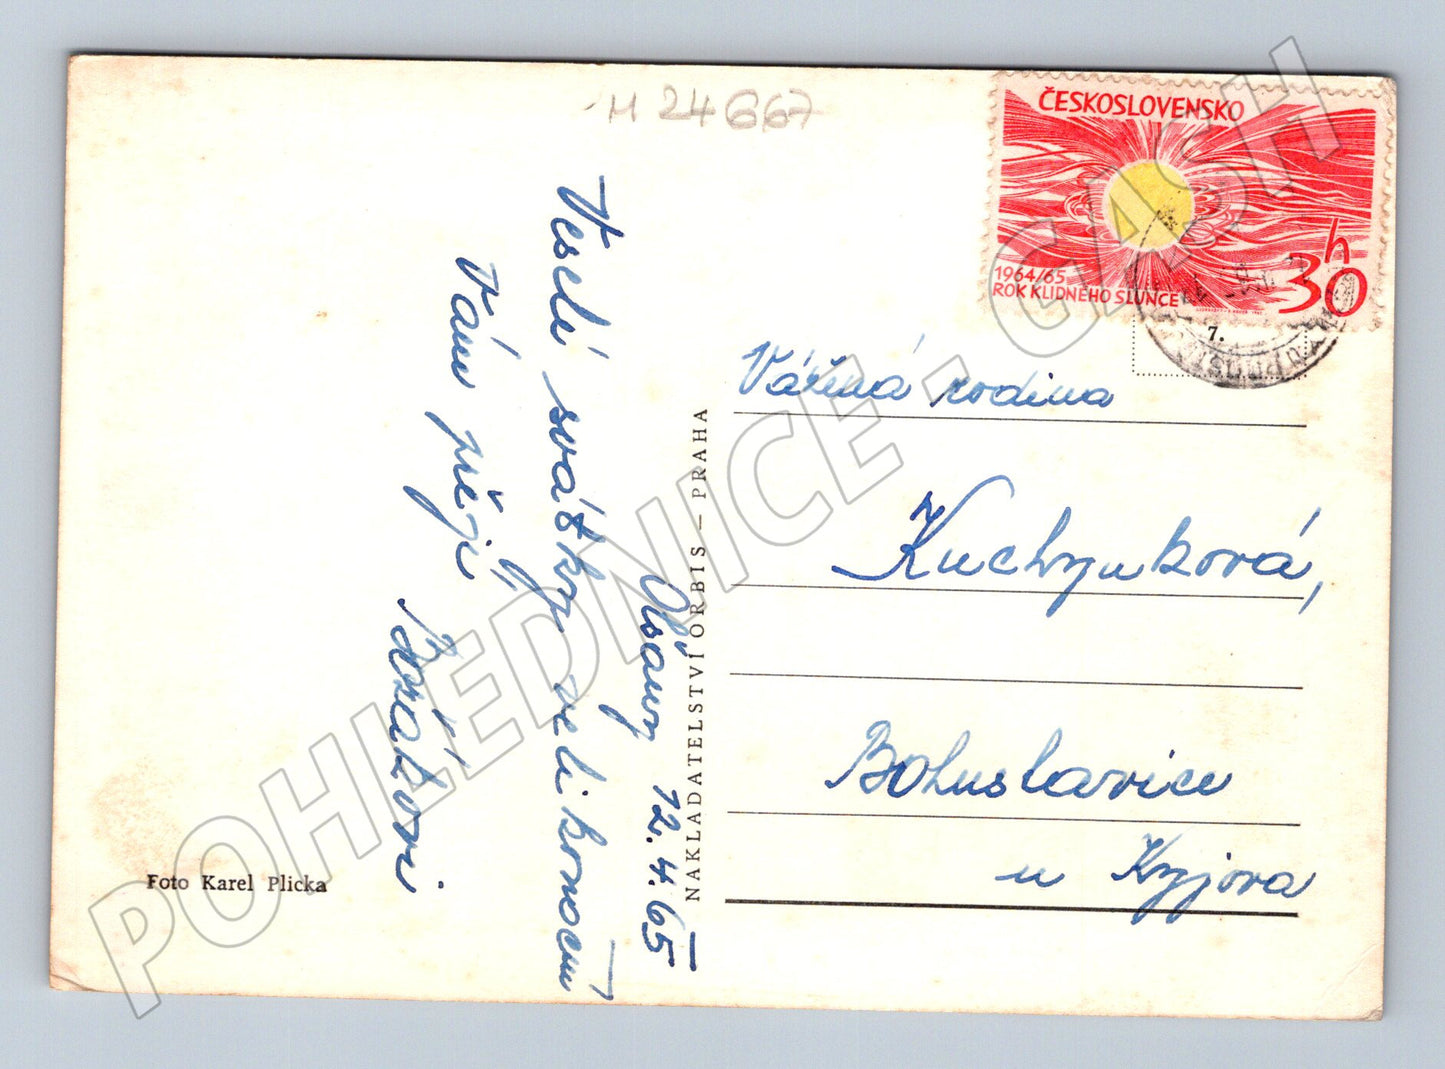 H 24667
ČESKOSLOVENSKO
1964/65
ROK KLIDNÉHO SLUNCE
30h
7.
Veselé svátky velikonoční
Vám přejí
Olšany 12.4.65
NAKLADATELSTVÍ ORBIS – PRAHA
Vážená rodina
Kuchyňková,
Bohuslavice
u Kyjova
Foto Karel Plicka
POHLEDNICE - CASH